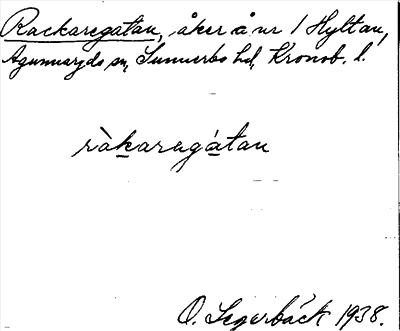 Rackaregatan, åker å nr 1 Hyltan,
Agunnaryds sn, Sunnerbo hd, Kronob. l.
ràkaregátan
O. Segerbäck 1938.